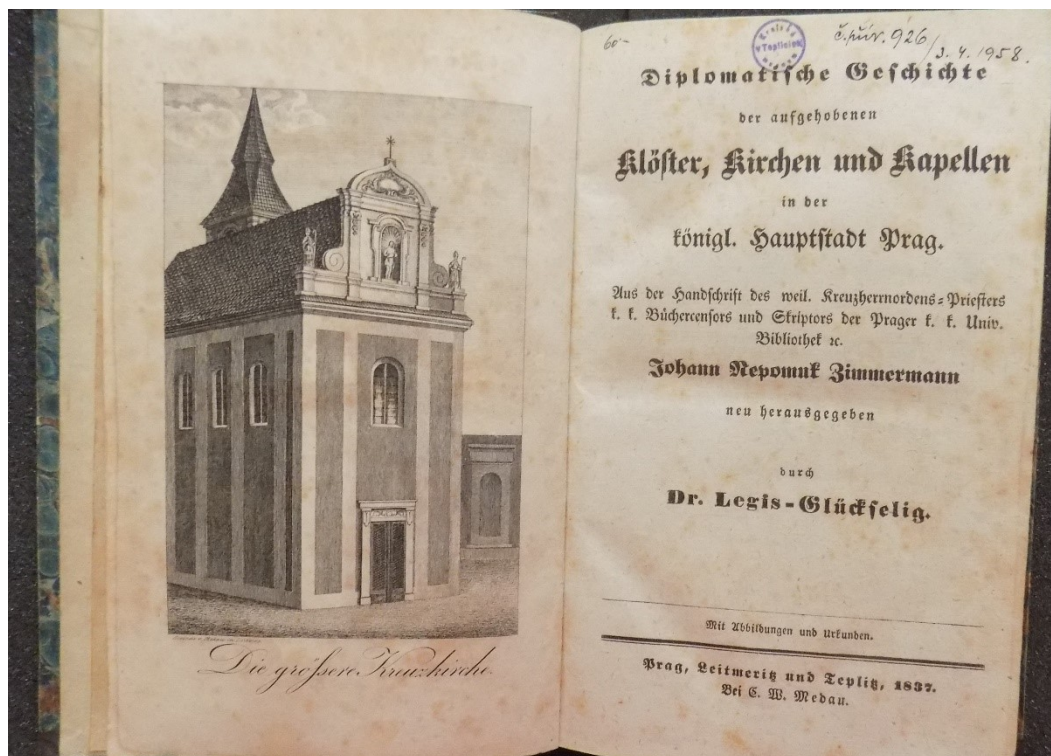 Die grössere Kreuzkirche.
60-
č. přír. 926/3. 4. 1958.
Diplomatische Geschichte
der aufgehobenen
Klöster, Kirchen und Kapellen
in der
königl. Hauptstadt Prag.
Aus der Handschrift des weil. Kreuzherrnordens-Priesters
k. k. Büchercensors und Skriptors der Prager k. k. Univ.
Bibliothek ꝛc.
Johann Nepomuk Zimmermann
neu herausgegeben
durch
Dr. Legis-Glückselig.
Mit Abbildungen und Urkunden.
Prag, Leitmeritz und Teplitz, 1837.
Bei C. W. Medau.